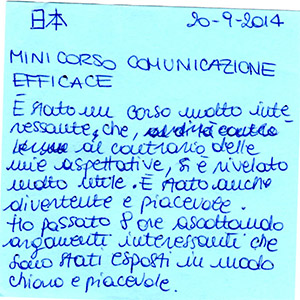 日本 20-9-2014
MINI CORSO COMUNICAZIONE
EFFICACE
È stato un corso molto inte
ressante, che, al contrario delle
mie aspettative, si è rivelato
molto utile. È stato anche
divertente e piacevole.
Ho passato 8 ore ascoltando
argomenti interessanti che
sono stati esposti in modo
chiaro e piacevole.